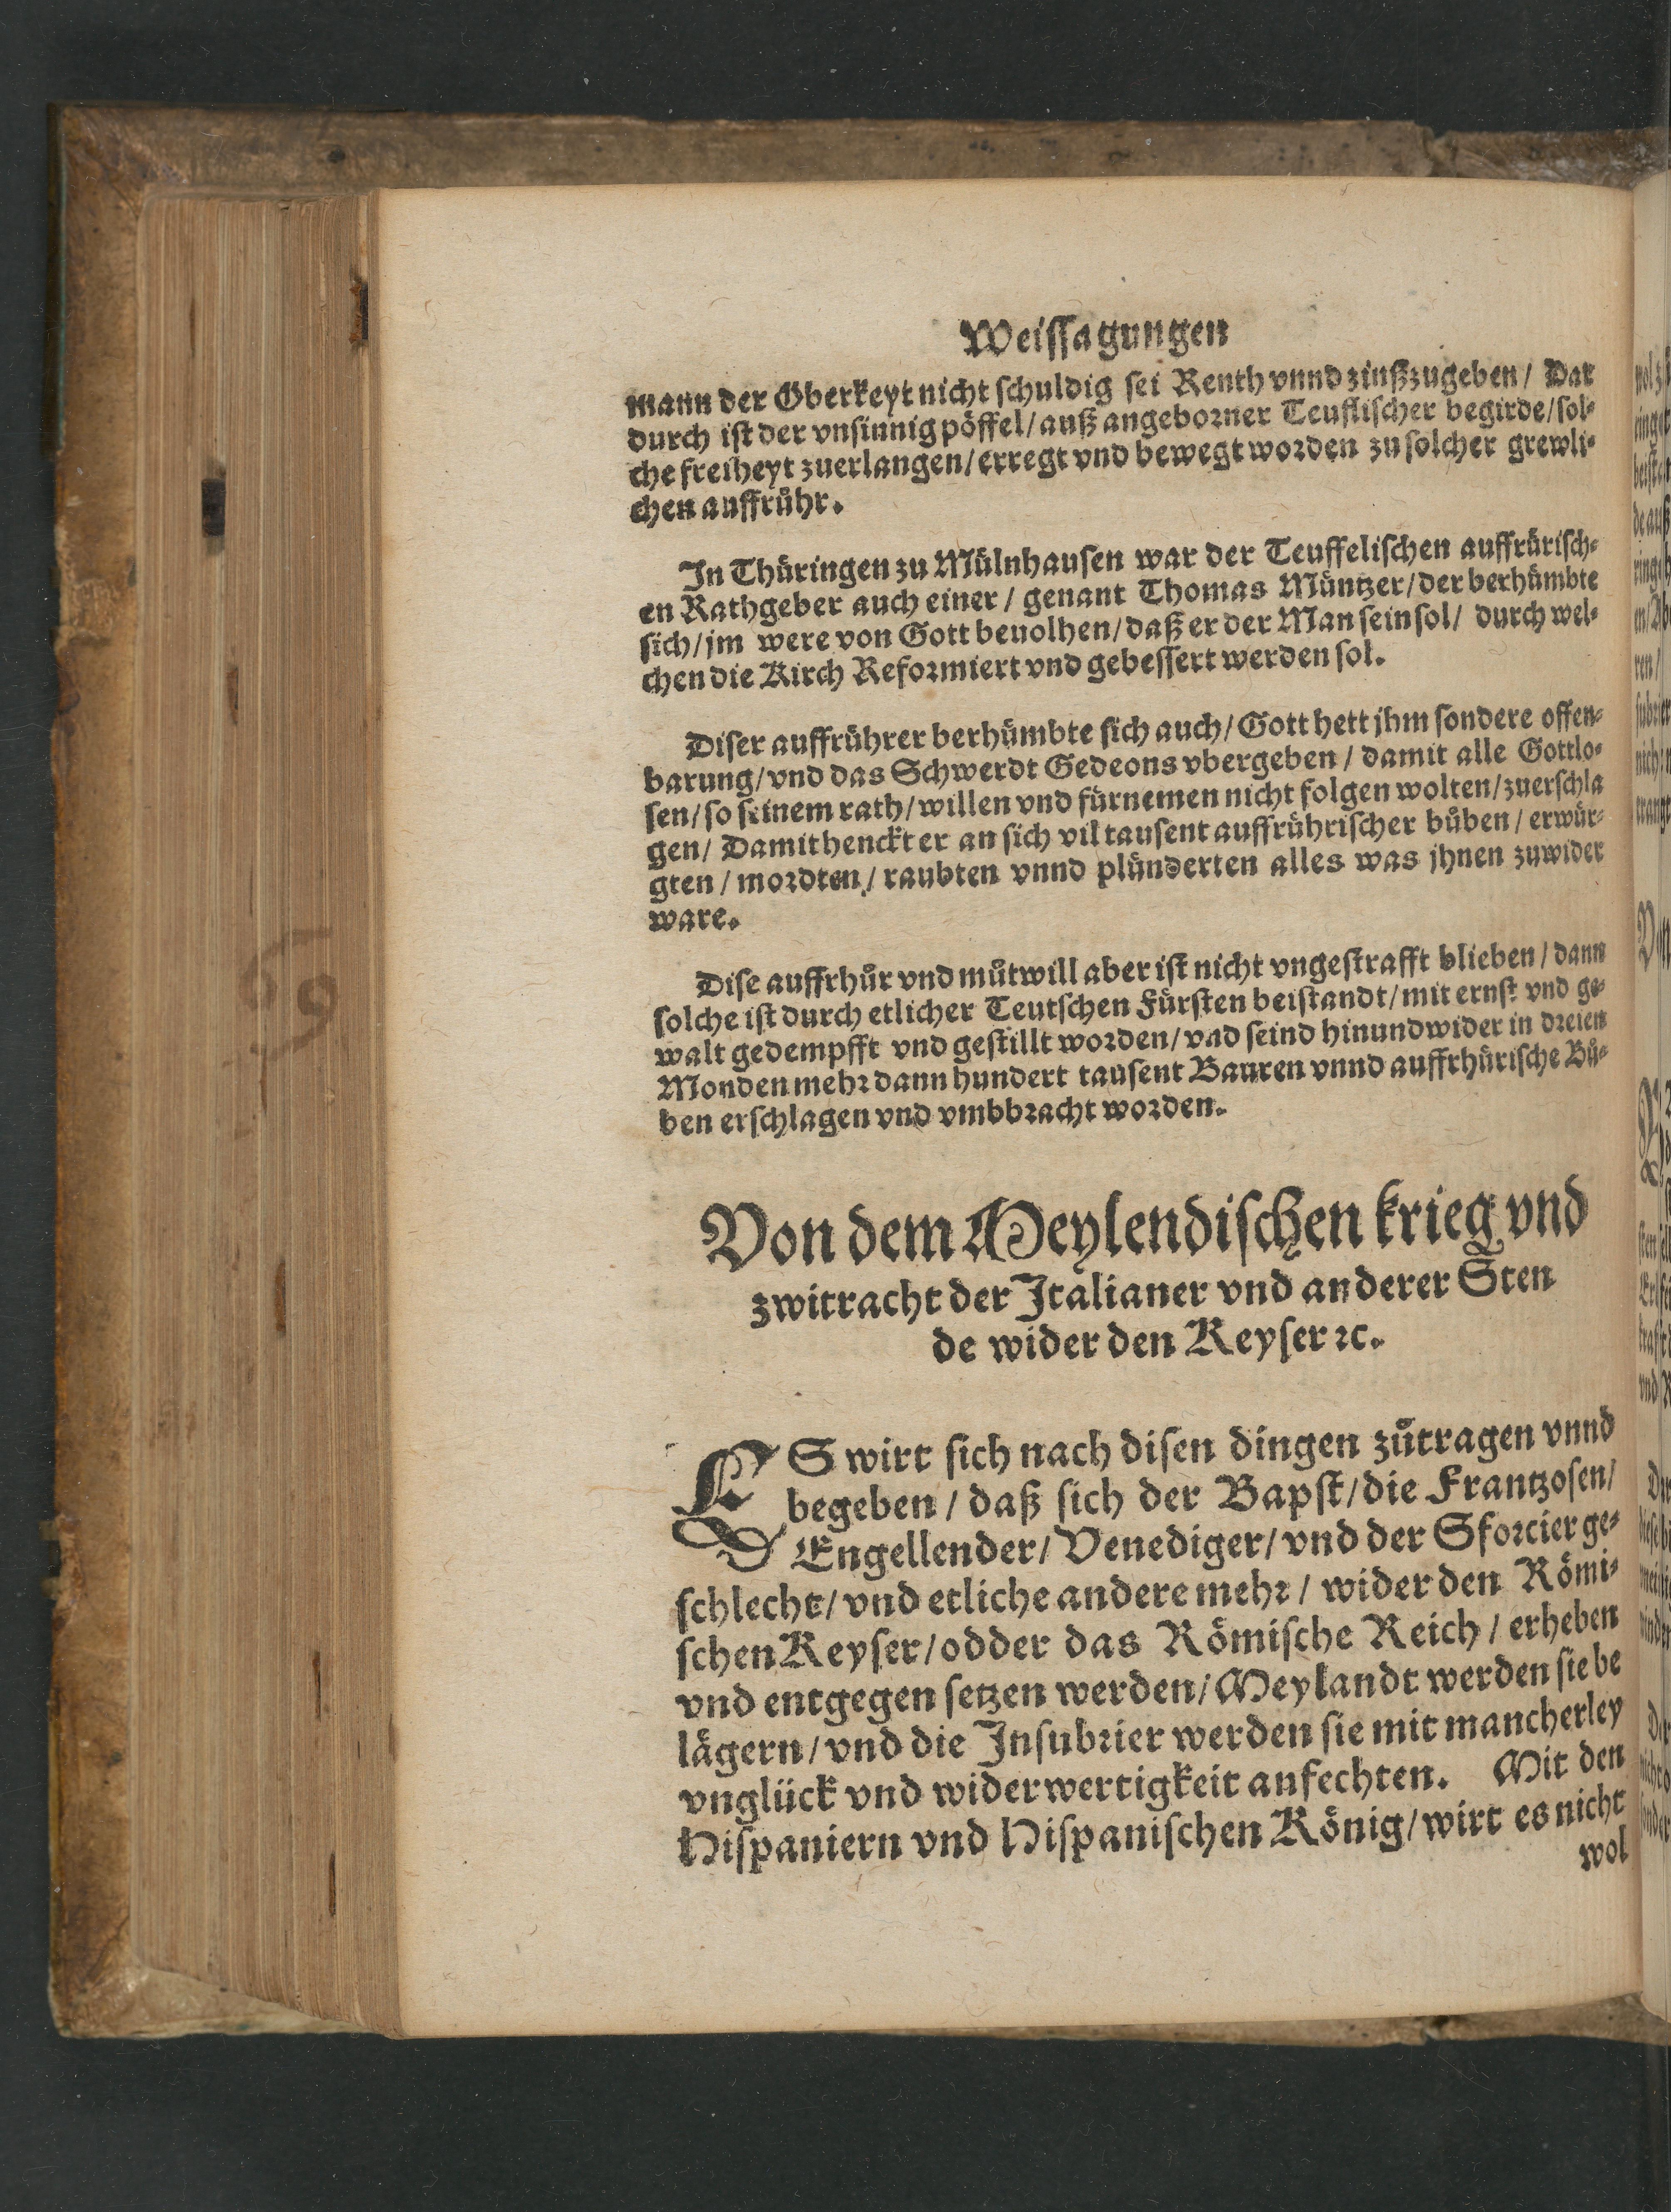 Weissagungen
mann der Oberkeyt nicht schuldig sei Renth vnnd zinßzugeben / Dar
durch ist der vnsinnig pöffel / auß angeborner Teuflischer begirde / sol⸗
che freiheyt zuerlangen / erregt vnd bewegt worden zu solcher grewli⸗
chen auffrůhr.
In Thüringen zu Mülnhausen war der Teuffelischen auffrürisch⸗
en Rathgeber auch einer / genant Thomas Müntzer / der berhümbte
sich / jm were von Gott beuolhen / daß er der Man sein sol / durch wel⸗
chen die Kirch Reformiert vnd gebessert werden sol.
Diser auffrührer berhümbte sich auch / Gott hett jhm sondere offen⸗
barung / vnd das Schwerdt Gedeons vbergeben / damit alle Gottlo⸗
sen / so seinem rath / willen vnd fürnemen nicht folgen wolten / zuerschla
gen / Damit henckt er an sich vil tausent auffrührischer bůben / erwür⸗
gten / mordten / raubten vnnd plünderten alles was jhnen zuwider
ware.
Dise auffrhůr vnd můtwill aber ist nicht vngestrafft blieben / dann
solche ist durch etlicher Teutschen Fürsten beistandt / mit ernst vnd ge⸗
walt gedempfft vnd gestillt worden / vnd seind hinundwider in dreien
Monden mehr dann hundert tausent Bauren vnnd auffrhürische Bů⸗
ben erschlagen vnd vmbbracht worden.
Von dem Meylendischen krieg vnd
zwitracht der Italianer vnd anderer Sten
de wider den Keyser ꝛc.
ES wirt sich nach disen dingen zůtragen vnnd
begeben / daß sich der Bapst / die Frantzosen /
Engellender / Venediger / vnd der Sforcier ge⸗
schlecht / vnd etliche andere mehr / wider den Römi⸗
schen Keyser / odder das Römische Reich / erheben
vnd entgegen setzen werden / Meylandt werden sie be
lägern / vnd die Insubrier werden sie mit mancherley
vnglück vnd widerwertigkeit anfechten. Mit den
Hispaniern vnd Hispanischen König / wirt es nicht
wol
69